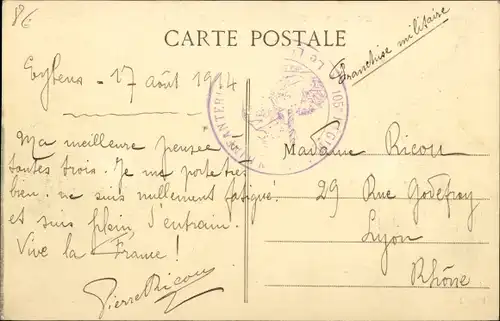 86
CARTE POSTALE
Franchise militaire
Eybens - 17 août 1914
105e
Ma meilleure pensée à
toutes trois. Je me porte très
bien, ne suis nullement fatigué,
et suis plein d'entrain.
Vive la France !
Pierre Ricou
Madame Ricou
29 Rue Godefroy
Lyon
Rhône